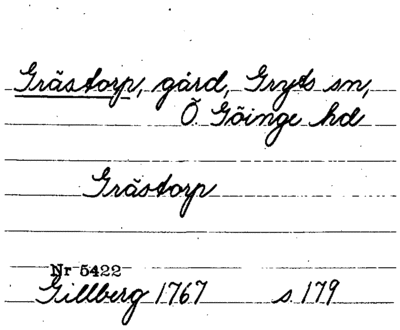 Grästorp, gård, Gryts sn,
Ö Göinge hd
Grästorp
Nr 5422
Gillberg 1767 s 179